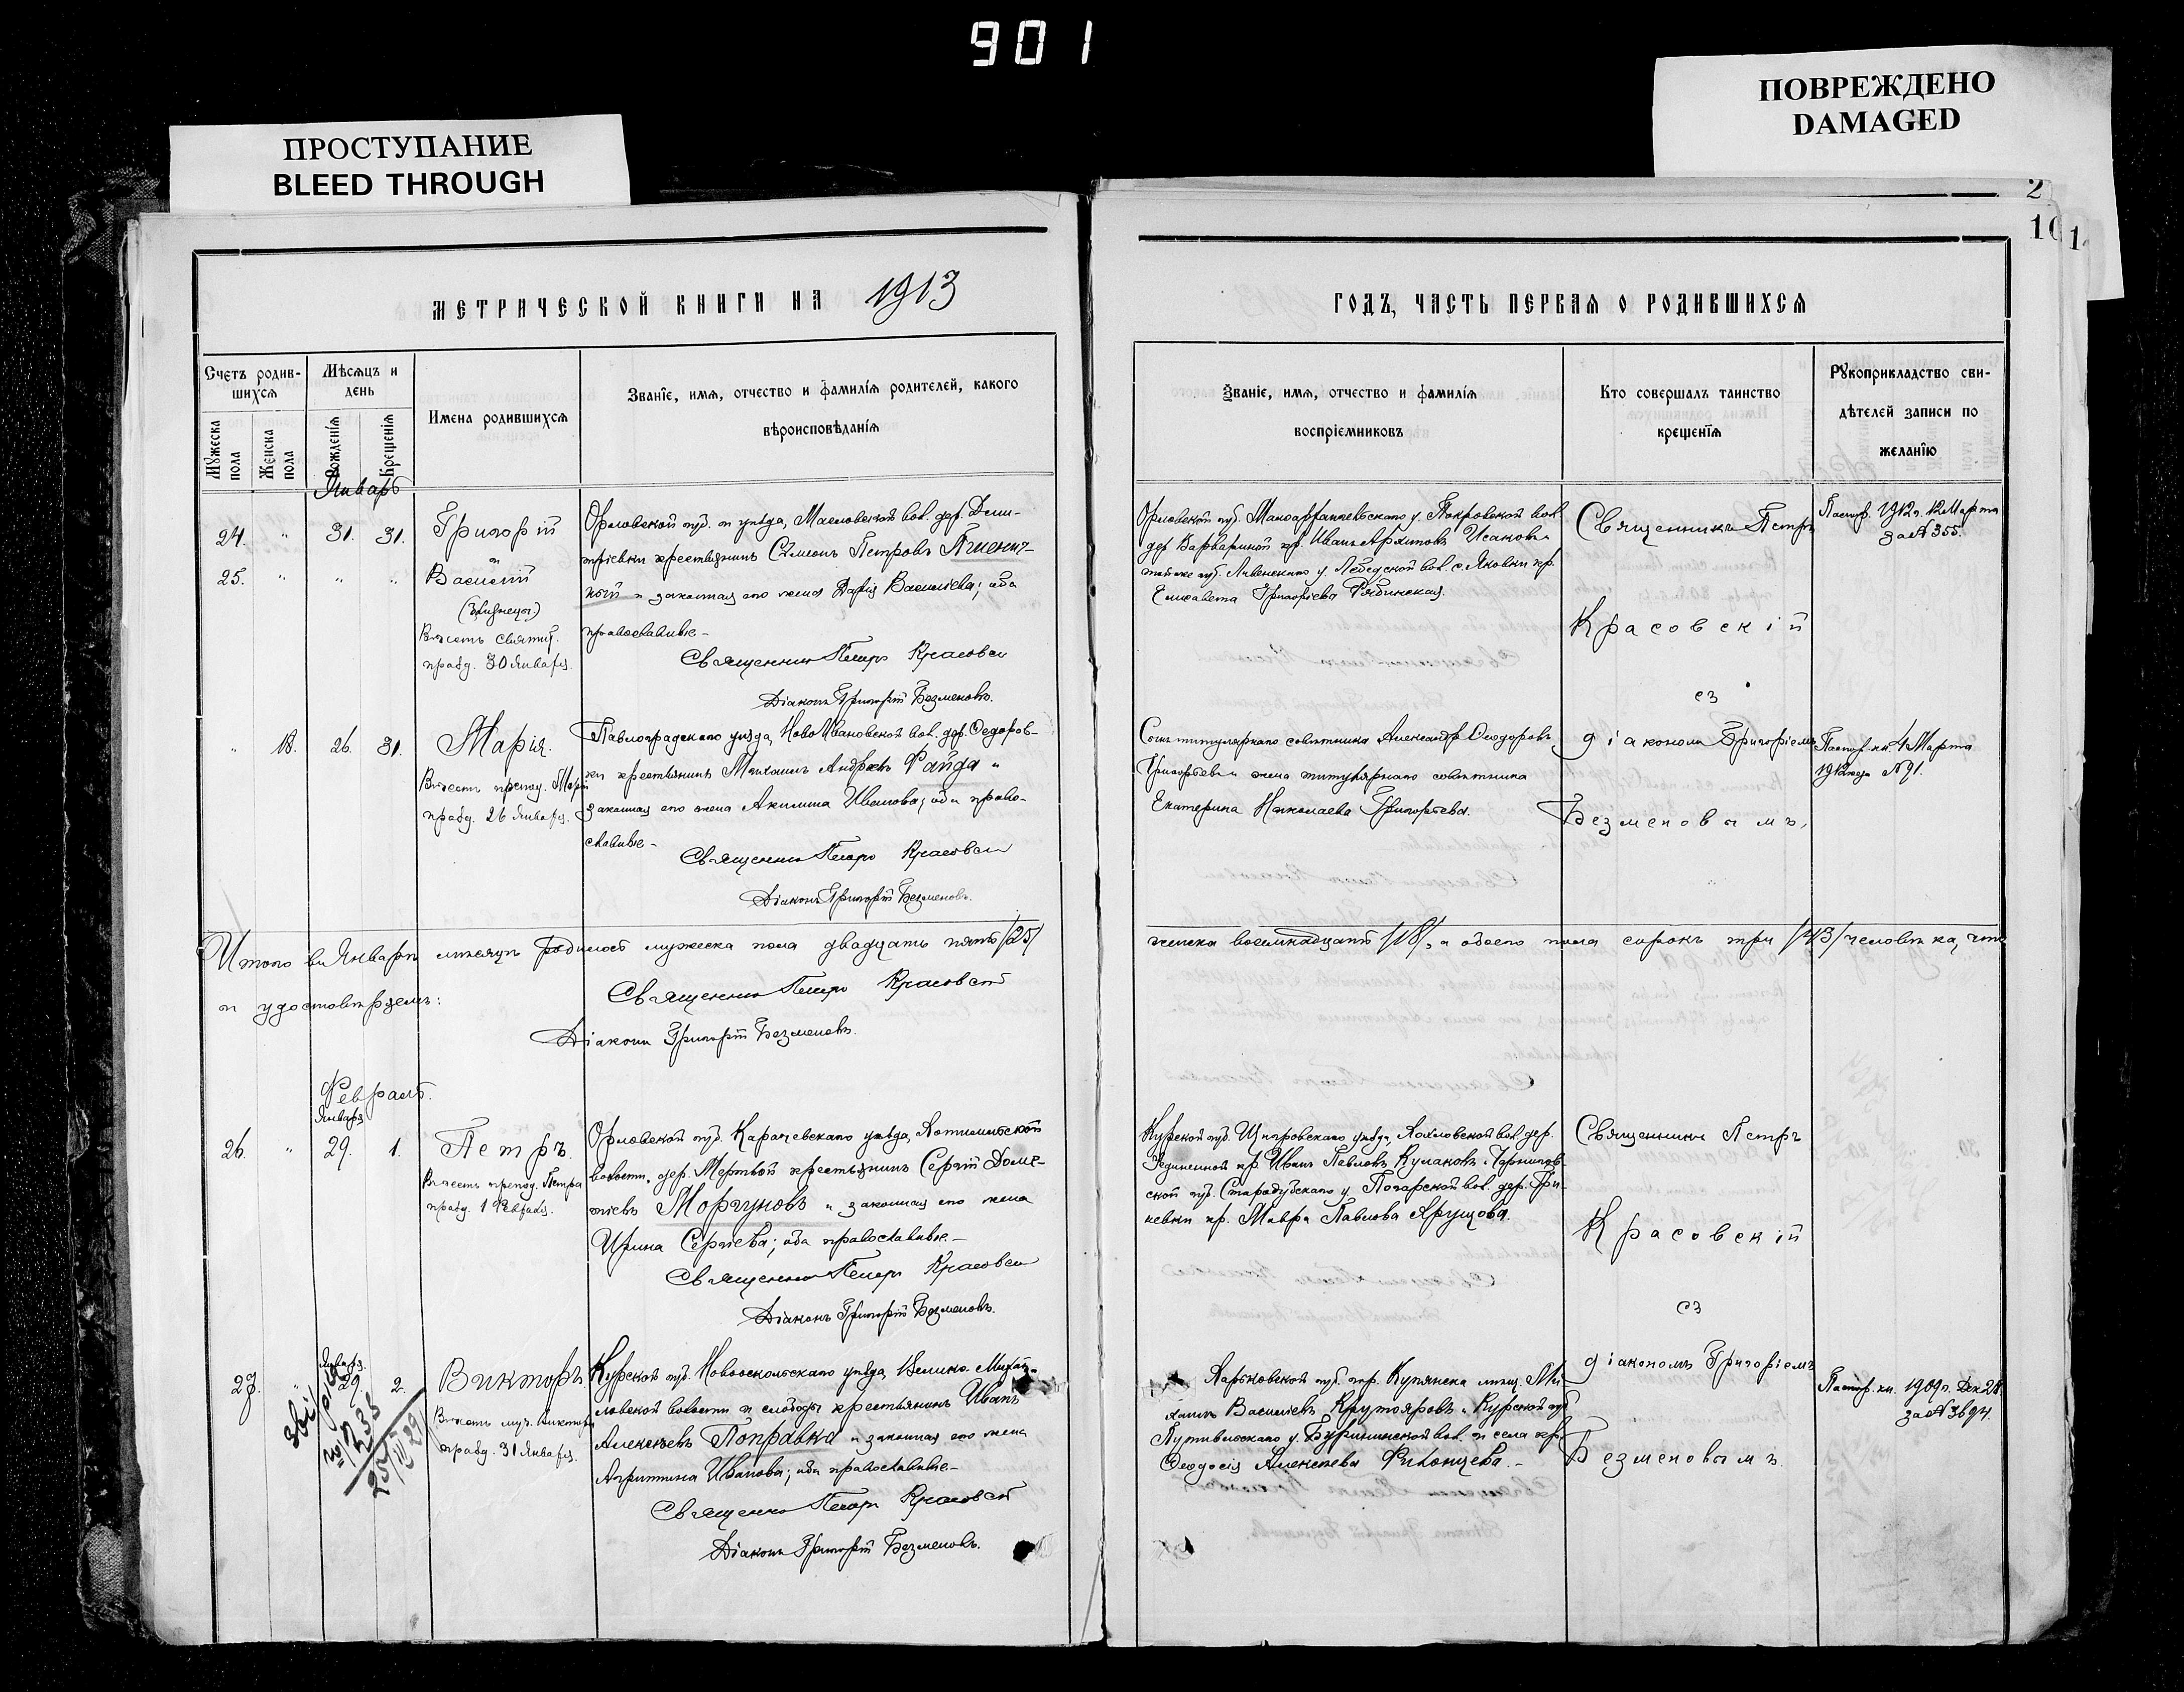 901
ПРОСТУПАНИЕ
BLEED THROUGH
ПОВРЕЖДЕНО
DAMAGED
2
10
1
МЕТРИЧЕСКОЙ КНИГИ НА 1913
Счетъ родив-
шихсѧ
Мѣсѧцъ и
день
Имена родившихсѧ
Званїе, имѧ, отчество и фамилїѧ родителей, какого
вѣроисповѣданїѧ
Мꙋжеска
пола
Женска
пола
Рожденїѧ
Крещенїѧ
Январь
24. " 31. 31. Григорій
и
25. " " " Василій
(Близнецы)
Въ честь святит.
празд. 30 Января.
Орловской губ. и уѣзда, Масловской вол. дер. Дми-
тріевки крестьянинъ Сѵмеонъ Петровъ
и законная его жена Дарія Васильева; оба
православные -
Священникъ Петръ Красовскій
Діаконъ Григорій Безменовъ.
" 18. 26. 31. Марія.
Въ честь препод. Маріи
празд. 26 Января.
Павлоградскаго уѣзда, Ново Ивановской вол. дер. Ѳедоров-
ки крестьянинъ Михаилъ Андреевъ Файда и
законная его жена Акилина Иванова; оба право-
славные -
Священникъ Петръ Красовскій
Діаконъ Григорій Безменовъ.
Итого въ Январѣ мѣсяцѣ родилось мужеска пола двадцать пять /25/
и удостовѣряемъ:
Священникъ Петръ Красовскій
Діаконъ Григорій Безменовъ.
Февраль.
Января
26. " 29. 1. Петръ.
Въ честь препод. Петра
празд. 1 Февраля.
Орловской губ. Карачевскаго уѣзда,
волости, дер. Мертвой крестьянинъ Сергій Доме-
тіевъ Моргуновъ и законная его жена
Ирина Сергіева; оба православные -
Священникъ Петръ Красовскій
Діаконъ Григорій Безменовъ.
Января.
27. " 29. 2. Викторъ.
Въ честь муч. Виктора
празд. 31 Января.
Курской губ. Новооскольскаго уѣзда, Велико-Михай-
ловской волости и слободы крестьянинъ Иванъ
Алексѣевъ Поправка и законная его жена
Агриппина Иванова; оба православные -
Священникъ Петръ Красовскій
Діаконъ Григорій Безменовъ.
ГОДЪ, ЧАСТЬ ПЕРВАѦ О РОДИВШИХСѦ
Званїе, имѧ, отчество и фамилїѧ
воспрїемниковъ
Кто совершалъ таинство
крещенїѧ
Рꙋкоприкладство сви-
дѣтелей записи по
желанїю
Орловской губ. Малоархангельскаго у. Покровской вол.
дер. Варвариной кр. Иванъ Архиповъ Исаковъ и
той же губ. Ливенскаго у. вол. с. Яковки кр.
Елисавета Григорьева Рябинская.
Священникъ Петръ
Красовскій
съ
діакономъ Григоріемъ
Безменовымъ,
Паспор. 1912 г. 12 Марта
за № 355.
Сынъ титулярнаго совѣтника Александръ Ѳеодоровъ
Григорьевъ и жена титулярнаго совѣтника
Екатерина Николаева Григорьева.
Паспор. кн. 4 Марта
1912 года № 91.
женска восемнадцать /18/, а обоего пола сорокъ три /43/ человѣка, что
Курской губ. Щигровскаго уѣзда, вол. дер.
кр. Иванъ Павловъ Кулаковъ и Чернигов-
ской губ. Стародубскаго у. Погарской вол. дер. Гри-
невки кр. Мавра Павлова
Священникъ Петръ
Красовскій
съ
діакономъ Григоріемъ
Безменовымъ.
Харьковской губ. гор. Купянска мѣщ. Ми-
хаилъ Василіевъ Крутояровъ и Курской губ.
Путивльскаго у. Бурынской вол. и села кр.
Ѳеодосія Алексѣева
Паспор. кн. 1909 г. Дек 28
за № 3694.